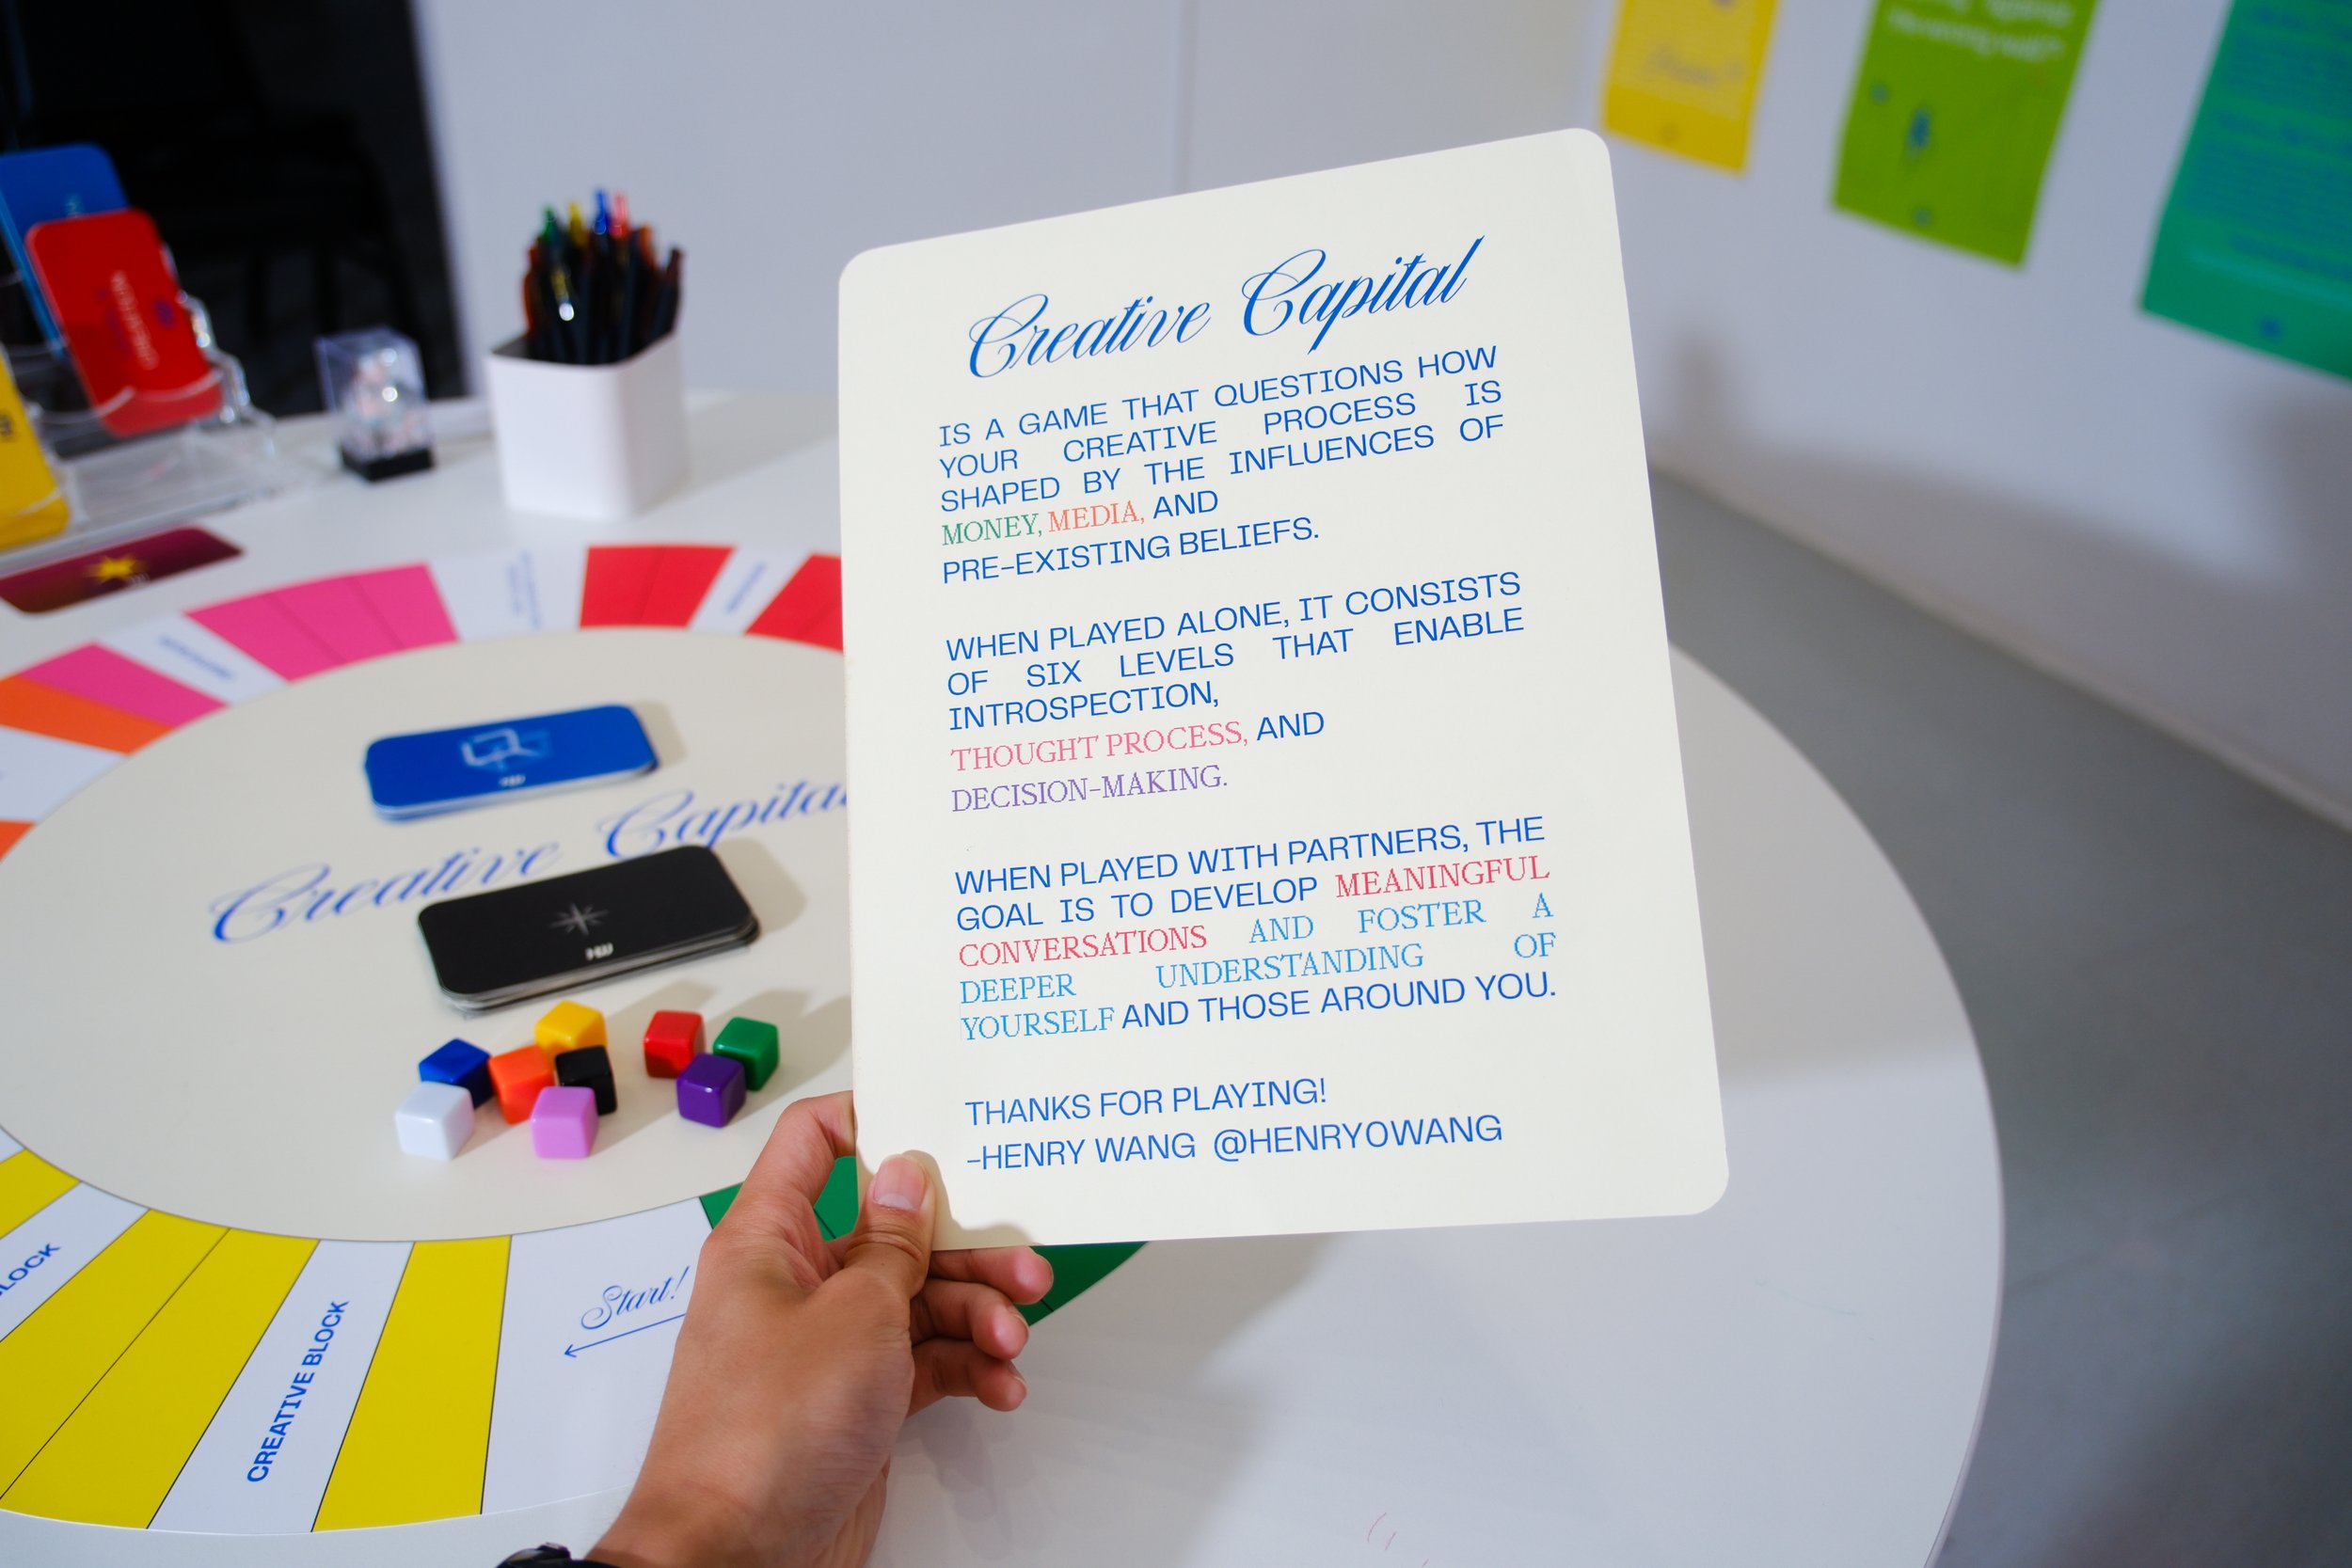 Creative Capital
IS A GAME THAT QUESTIONS HOW
YOUR CREATIVE PROCESS IS
SHAPED BY THE INFLUENCES OF
MONEY, MEDIA, AND
PRE-EXISTING BELIEFS.
WHEN PLAYED ALONE, IT CONSISTS
OF SIX LEVELS THAT ENABLE
INTROSPECTION,
THOUGHT PROCESS, AND
DECISION-MAKING.
WHEN PLAYED WITH PARTNERS, THE
GOAL IS TO DEVELOP MEANINGFUL
CONVERSATIONS AND FOSTER A
DEEPER UNDERSTANDING OF
YOURSELF AND THOSE AROUND YOU.
THANKS FOR PLAYING!
-HENRY WANG @HENRYOWANG
Creative Capital
Start!
CREATIVE BLOCK